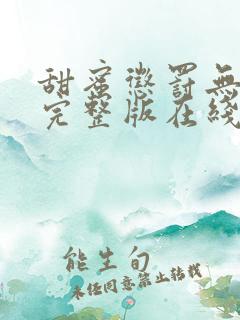 甜蜜惩罚无
完整版在线
能生旬
未经同意禁止转载